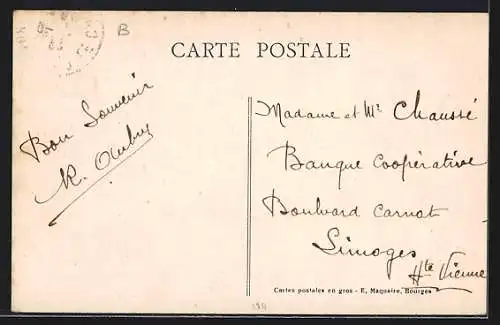 B
CARTE POSTALE
Bon Souvenir
R. Aubry
Madame et Mr Chaussé
Banque Coopérative
Boulevard Carnot
Limoges
Hte Vienne
Cartes postales en gros - E. Maquaire, Bourges